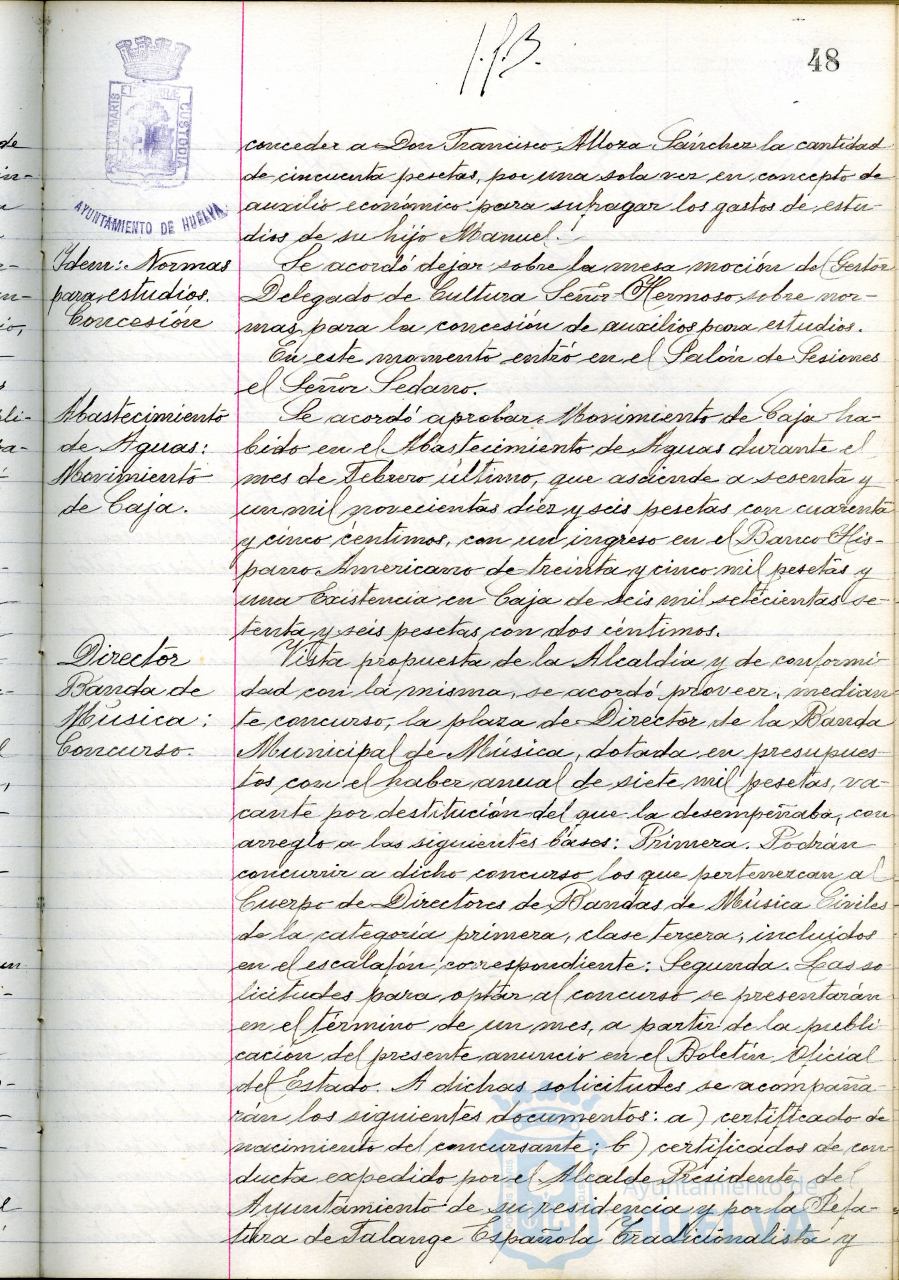 48
AYUNTAMIENTO DE HUELVA
conceder a Don Francisco Alloza Sánchez la cantidad
de cincuenta pesetas, por una sola vez en concepto de
auxilio económico para sufragar los gastos de estu-
dios de su hijo Manuel.
Idem: Normas
para estudios.
Concesión
Se acordó dejar sobre la mesa moción del Gestor
Delegado de Cultura Señor Hermoso sobre nor-
mas para la concesión de auxilios para estudios.
En este momento entró en el Salón de Sesiones
el Señor Sedano.
Abastecimiento
de Aguas:
Movimiento
de Caja.
Se acordó aprobar Movimiento de Caja ha-
bido en el Abastecimiento de Aguas durante el
mes de Febrero último, que asciende a sesenta y
un mil novecientas diez y seis pesetas con cuarenta
y cinco céntimos, con un ingreso en el Banco His-
pano Americano de treinta y cinco mil pesetas y
una Existencia en Caja de seis mil setecientas se-
tenta y seis pesetas con dos céntimos.
Director
Banda de
Música:
Concurso.
Vista propuesta de la Alcaldía y de conformi-
dad con la misma, se acordó proveer, median-
te concurso, la plaza de Director de la Banda
Municipal de Música, dotada en presupues-
tos con el haber anual de siete mil pesetas, va-
cante por destitución del que la desempeñaba, con
arreglo a las siguientes bases: Primera. Podrán
concurrir a dicho concurso los que pertenezcan al
Cuerpo de Directores de Bandas de Música Civiles
de la categoría primera, clase tercera, incluidos
en el escalafón correspondiente: Segunda. Las so
licitudes para optar al concurso se presentarán
en el término de un mes, a partir de la publi
cación del presente anuncio en el Boletín Oficial
del Estado. A dichas solicitudes se acompaña-
rán los siguientes documentos: a) certificado de
nacimiento del concursante; b) certificados de con
ducta expedido por el Alcalde Presidente del
Ayuntamiento de su residencia y por la Jefa-
tura de Falange Española Tradicionalista y
Ayuntamiento de
HUELVA